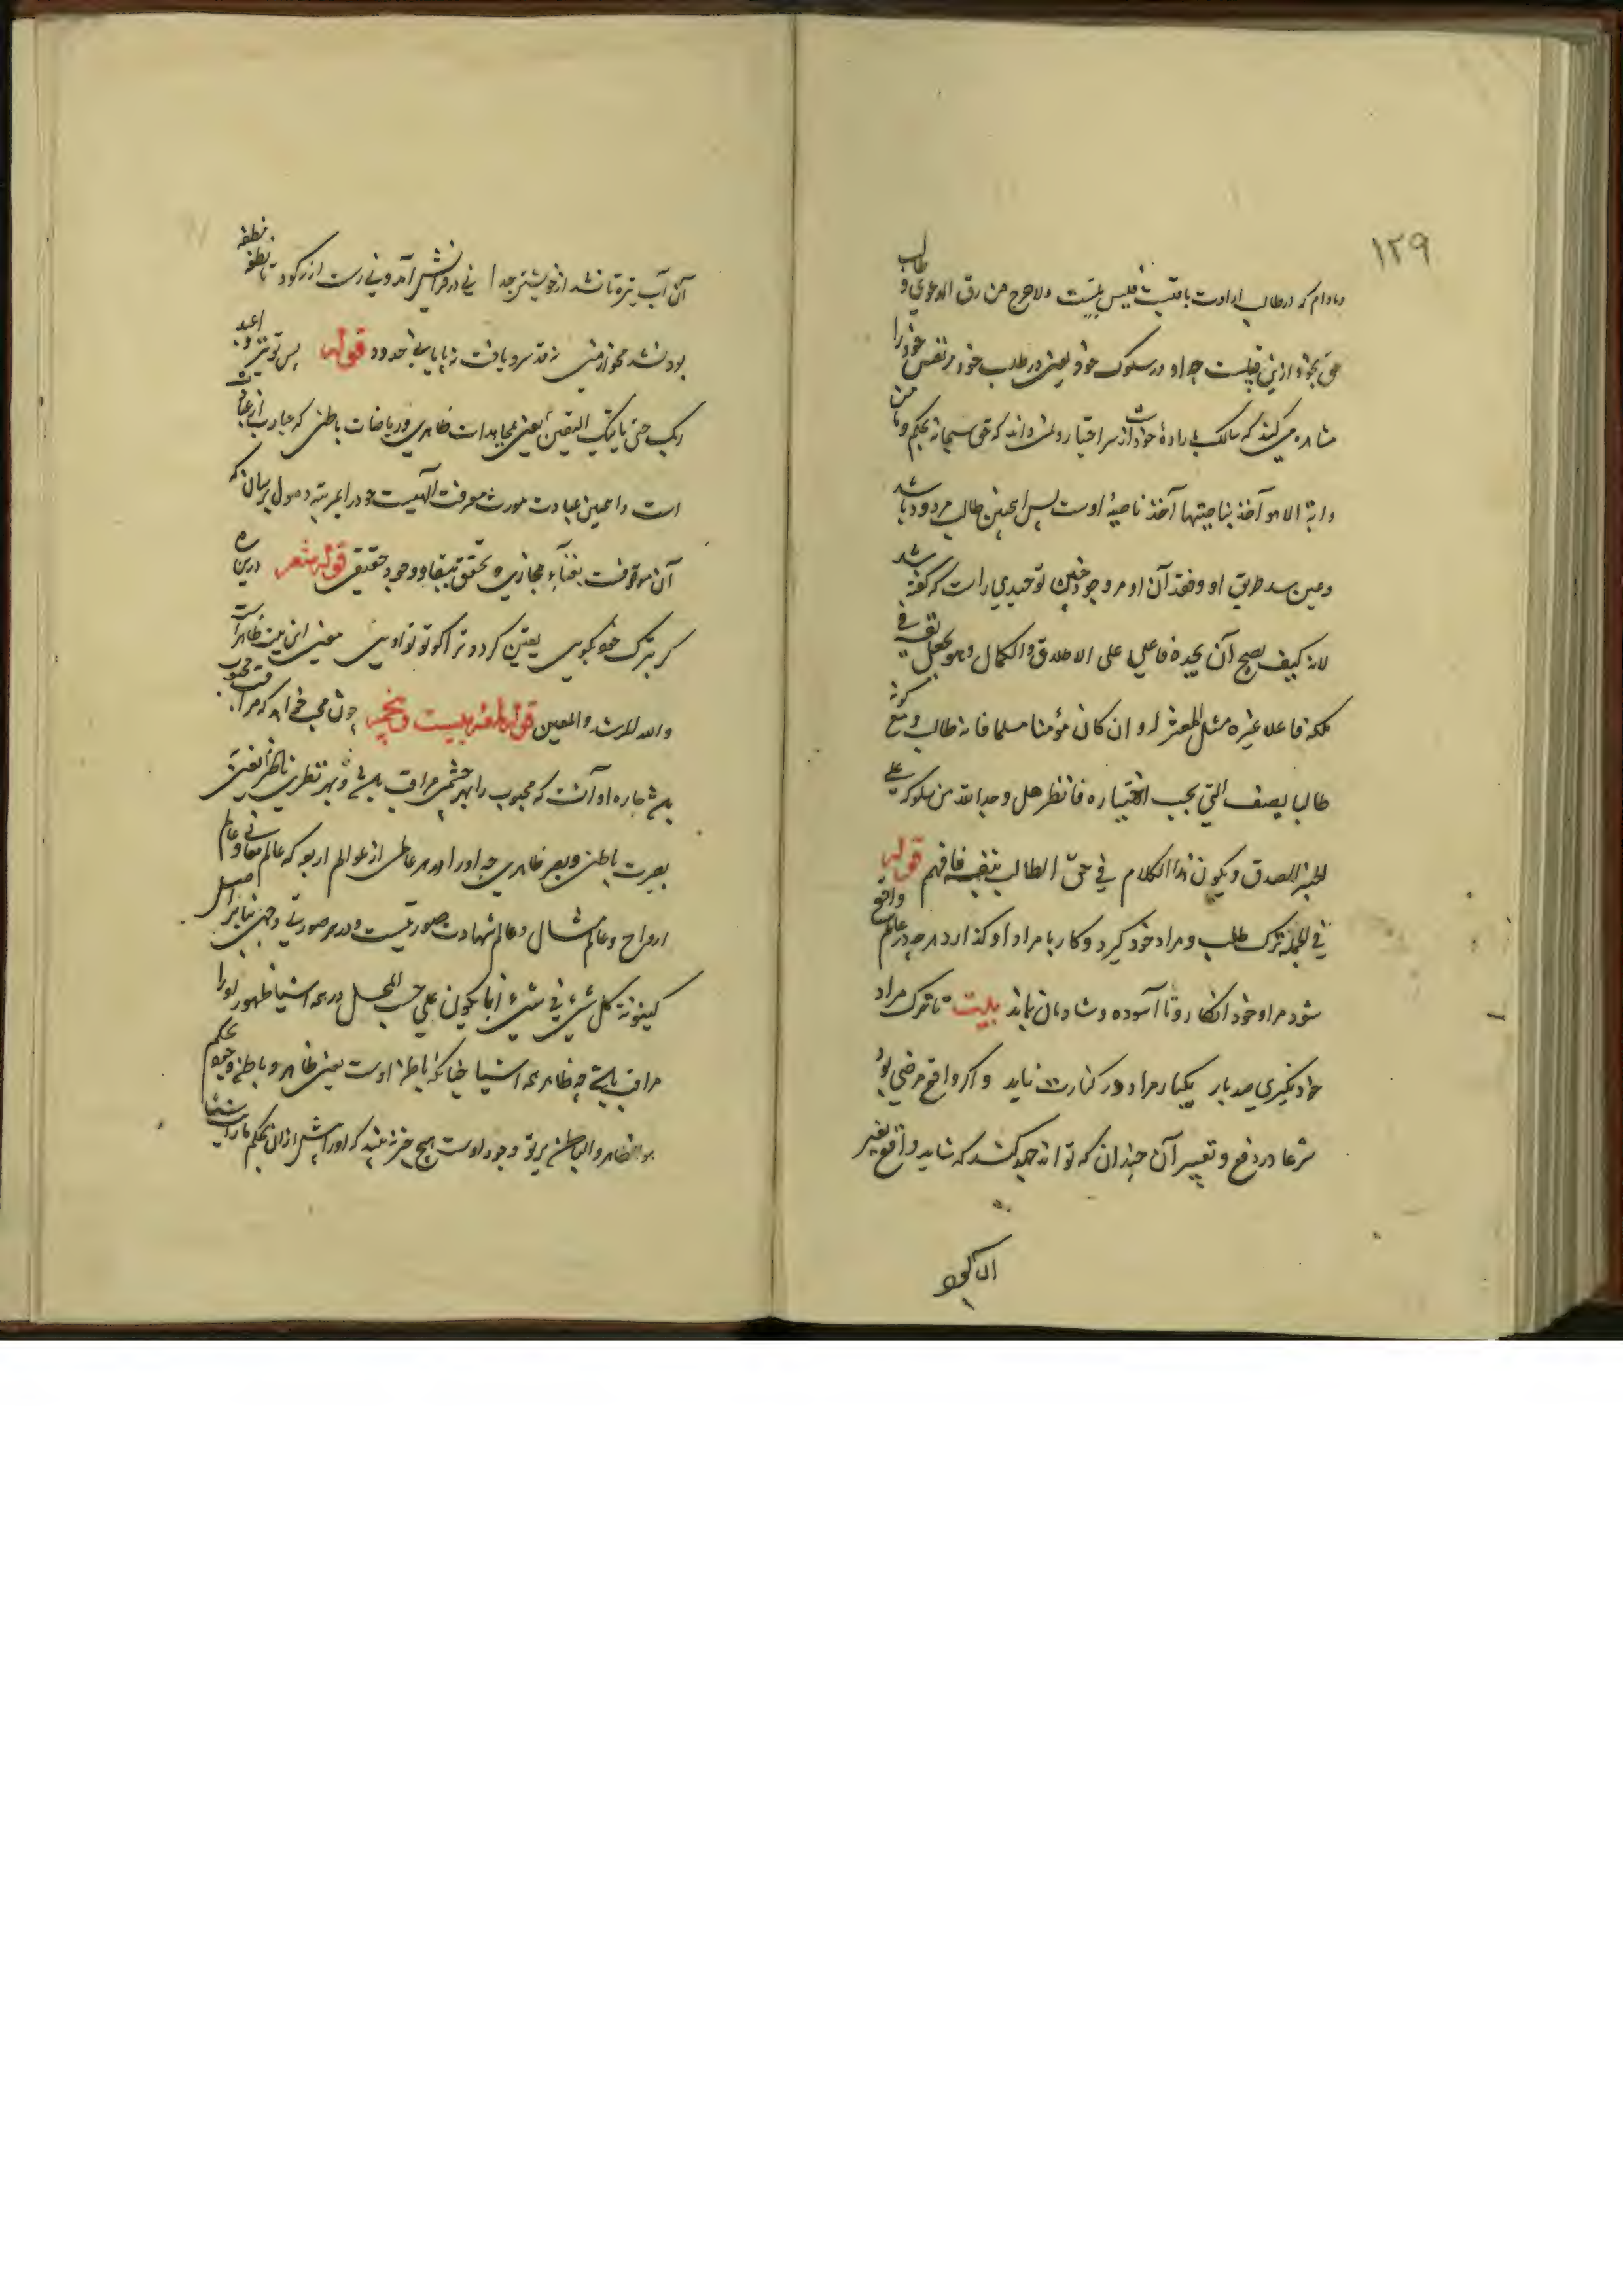 ١٢٩
مادام که در طالب ارادت باقیست فلیس بمیت ولا خرج من رق الدعوی و طالب
حق بخود ازین قبیلست چه او در سلوک خود یعنی در طلب خود مر نفس خود را
مشاهده می کند که سالک باراده خود است از سر اختیار و نمی داند که حق سبحانه بحکم وما من
دابة الا هو آخذ بناصیتها آخذ ناصیهٔ اوست پس اینچنین طالب مردود باشد
وعین سد طریق او وفقد آن او مر وجود چنین توحیدی راست که گفته شد
لانه کیف یصح ان یجده فاعلی علی الاطلاق والکمال وهو یجعل نفسه فی
ملکه فاعلا غیره مثل المعتزله وان کان مؤمنا مسلما فانه طالب ومع کونه
طالبا یصف التی یجب اختیاره فانظر هل وجد الله من سلوکه علی
الخبر الصدق ویکون هذا الکلام فی حق الطالب بنفسه فافهم قوله
فی الجمله ترک طلب و مراد خود گیرد و کار با مراد او گذارد هر چه در عالم واقع
شود مراد خود انگارد تا آسوده و شادمان باند بیت تا ترک مراد
خود نگیری صد بار یکبار مراد در کنارت ناید و اگر واقع مرضی بود
شرعا در دفع و تغییر آن چندان که تواند جهد کند که شاید واقع تغییر
آن آب تیره تا نشد از خویشتن جدا نی در فرانش آمد و نی رست از رکود تا نطفه نطفه
بود نشد محو از منی نه قد سرو یافت نه پایابی خدود قوله پس تو نیز واعبد
ربک حتی یاتیک الیقین یعنی مجاهدات ظاهری و ریاضات باطنی که عبارت از عبادت
است و اینچنین عبادت مورث معرفت الهیست خود در این مرتبه وصول برسان که
آن موقوفست بفناء مجازی و تحقق ببقا و وجود حقیقی قوله شعر درین ره
گر بترک خود بگویی یقین گردد ترا کو تو تو اویی معنی این بیت ظاهر است
والله المرشد والمعین قوله لمعه بیست و پنجم چون محب خواهد که مراقب محبوب
باشد چاره او آنست که محبوب را بهر چشمی مراقب باشد و بهر نظری ناظر یعنی
بصیرت باطن و بصر ظاهری چه او را در هر عالمی از عوالم اربعه که عالم معانی و عالم
ارواح و عالم مثال و عالم شهادت صورتیست و در هر صورتی وجهی بنا بر اصل
کینونة کل شیء فی شیء انما یکون علی حسب المحل در همه اشیا ظهور او را
مراقب باشد چه ظاهر همه اشیا چنانکه باطن اوست یعنی ظاهر و باطن وجود بحکم
هو الظاهر والباطن پرتو وجود اوست هیچ چیز نه بیند که او را پیش از آن بحکم ما رایت شیئا